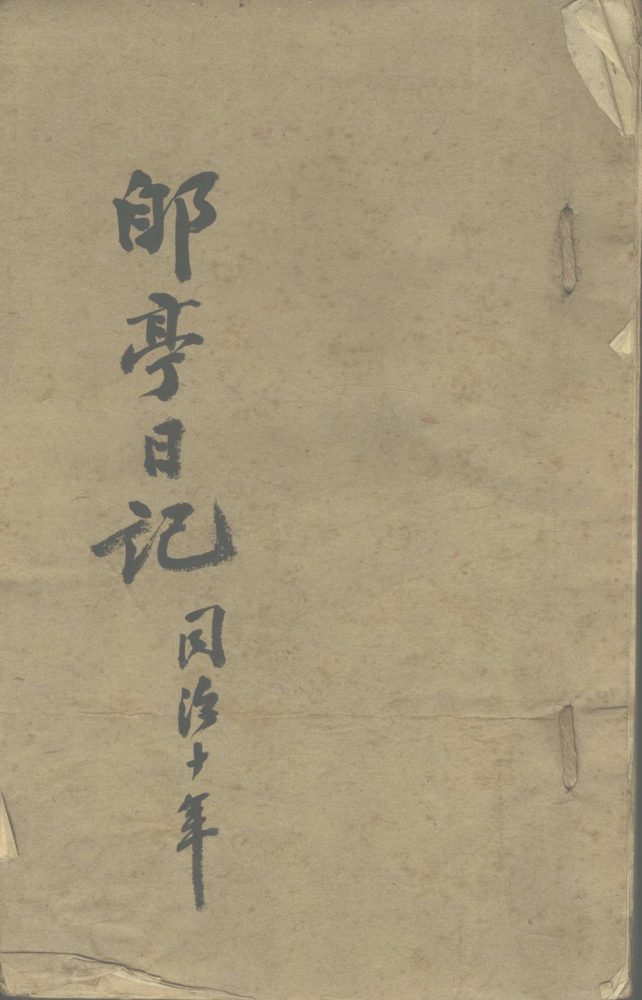 郋亭日記
同治十年